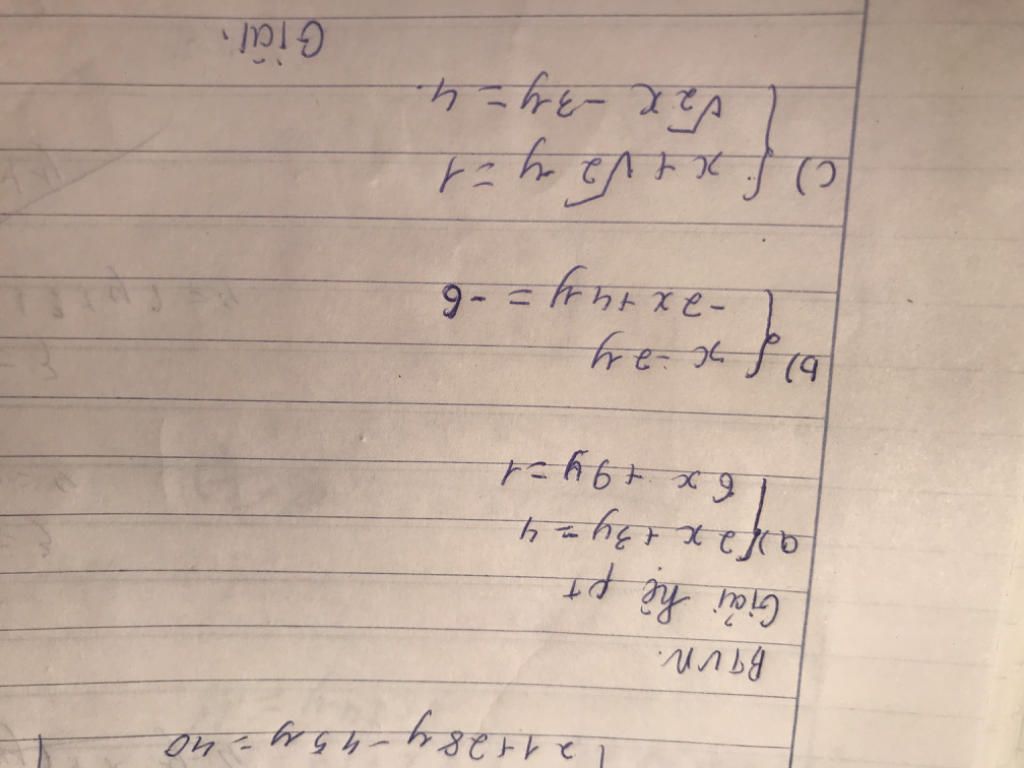 21+28y-45y=40
BTVN.
Giải hệ pt
a) { 2x+3y=4
6x+9y=1
b) { x-2y
-2x+4y=-6
c) { x+√2y=1
√2x-3y=4.
Giải.